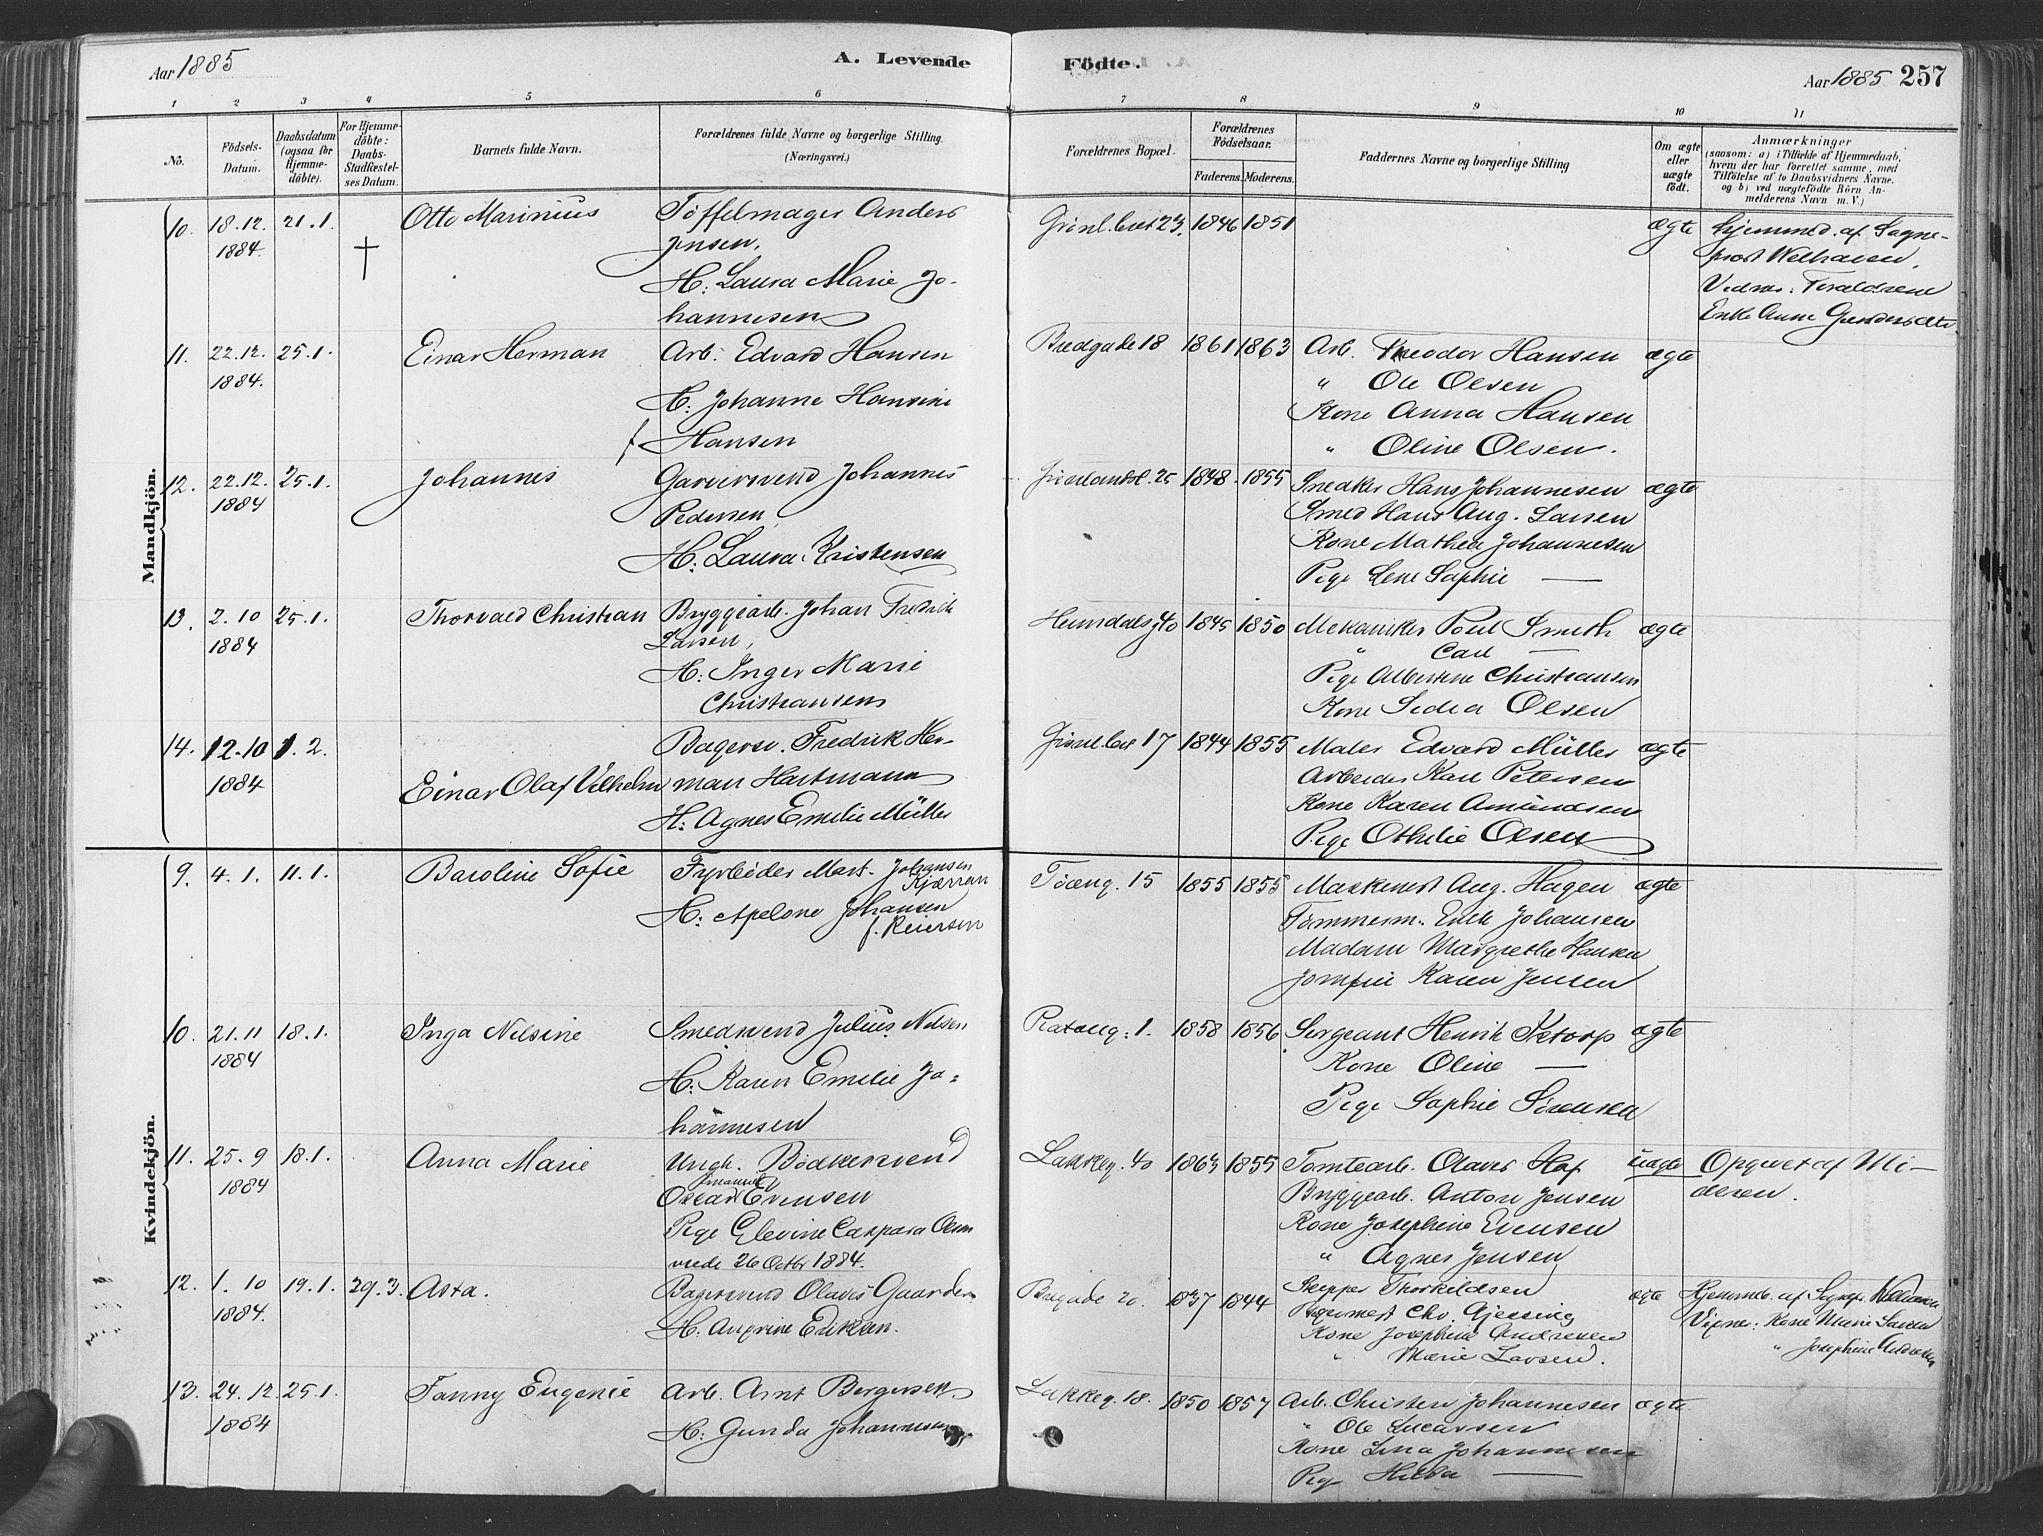 Aar 1885
A. Levende
Födte.
Aar 1885 257
1 2 3 4 5 6 7 8 9 10 11
No.
Födsels-
Datum.
Daabsdatum
(ogsaa for
Hjemme-
döbte).
For Hjemme-
döbte:
Daabs-
Stadfæstel-
ses Datum.
Barnets fulde Navn.
Forældrenes fulde Navne og borgerlige Stilling.
(Næringsvei.)
Forældrenes Bopæl.
Forældrenes
Födselsaar.
Faderens. Moderens.
Faddernes Navne og borgerlige Stilling
Om ægte
eller
uægte
födt.
Anmærkninger
(saasom: a) i Tilfælde af Hjemmedaab,
hvem der har forrettet samme, med
Tilföielse af to Daabsvidners Navne.
og b) ved uægtefödte Börn An-
melderens Navn m. V.)
Mandkjön.
10. 18.12. 21.1. Otto Marinius
1884. †
Töffelmager Anders
Jensen,
H: Laura Marie Jo-
hannesen
Grönl.leret 23. 1846 1851
ægte
Hjemmed. af Sogne-
prest Welhaven.
Vidner: Forældrene
Enke Anne
11. 22.12. 25.1. Einar Herman
1884.
Arb. Edvard Hansen
H: Johanne Hansine
f Hansen
Bredgade 18 1861 1863
Arb. Theodor Hansen
" Ole Olsen
Kone Anna Hansen
" Oline Olsen.
ægte
12. 22.12. 25.1. Johannes
1884
Garversvend Johannes
Pedersen,
H: Laura Kristensen
Grönlandsl. 25 1848. 1855
Snedker Hans Johannesen
Smed Hans Aug. Larsen
Kone Mathea Johannesen
Pige Lene Sophie —
ægte
13. 2.10 25.1. Thorvald Christian
1884
Bryggearb. Johan Fredrik
Larsen,
H: Inger Marie
Christiansen
Heimdalsg 40 1845 1850
Mekaniker Poul Smith
" Carl —
Pige Albertine Christiansen
Kone Sedia Olsen
ægte
14. 12.10 1.2.
1884 Einar Olaf Vilhelm
Bagersv. Fredrik Her-
man Hartmann
H: Agnes Emilie Müller
Grönl.leret 17 1844 1855
Maler Edvard Müller
Arbeider Karl Petersen
Kone Karen Amundsen
Pige Othilie Olsen
ægte
Kvindekjön.
9. 4.1. 11.1. Baroline Sofie
Fyrböder Mart. Johansen
Kjærran
H: Apelone Johansen
f. Reiersen
Töieng. 15 1855 1855
Maskinist Aug. Hagen
Tömmerm. Erik Johansen
Madam Margrethe Hansen
Jomfru Karen Jensen
ægte
10. 21.11 18.1. Inga Nilsine
1884
Smedsvend Julius Nilsen
H: Karen Emilie Jo-
hannesen
1. 1858 1856
Sergeant Henrik
Kone Oline —
Pige Sophie Sörensen
ægte
11. 25.9 18.1. Anna Marie
1884
Ungk. Bödkersvend
Oscar Evensen
Pige Elevine Caspara Olsen
vrede 26 Octbr 1884.
Lakkeg. 40 1863 1855
Tomtearb. Olaves Haf
Bryggearb. Anton Jensen
Kone Josephine Evensen
" Agnes Jensen
uægte
Opgivet af Mo-
deren.
12. 1.10 19.1. 29.3. Asta.
1884.
Bagersvend Olaves Gaarder
H: Eriksen.
20. 1837 1844
Skipper Thorkildsen
Bagermest Chr. Gjessing
Kone Josephine Andresen
" Marie Larsen.
ægte
Hjemmed. af Sognepr. Welhaven
Vidne: Kone Marie Larsen
" Josephine Andresen
13. 24.12 25.1. Fanny Eugenie
1884
Arb. Arnt Bergersen
H: Gunda Johannesen
Lakkeg. 18. 1850 1857
Arb. Christen Johannesen
" Ole Lucassen
Kone Lina Johannesen
Pige Hilda —
ægte